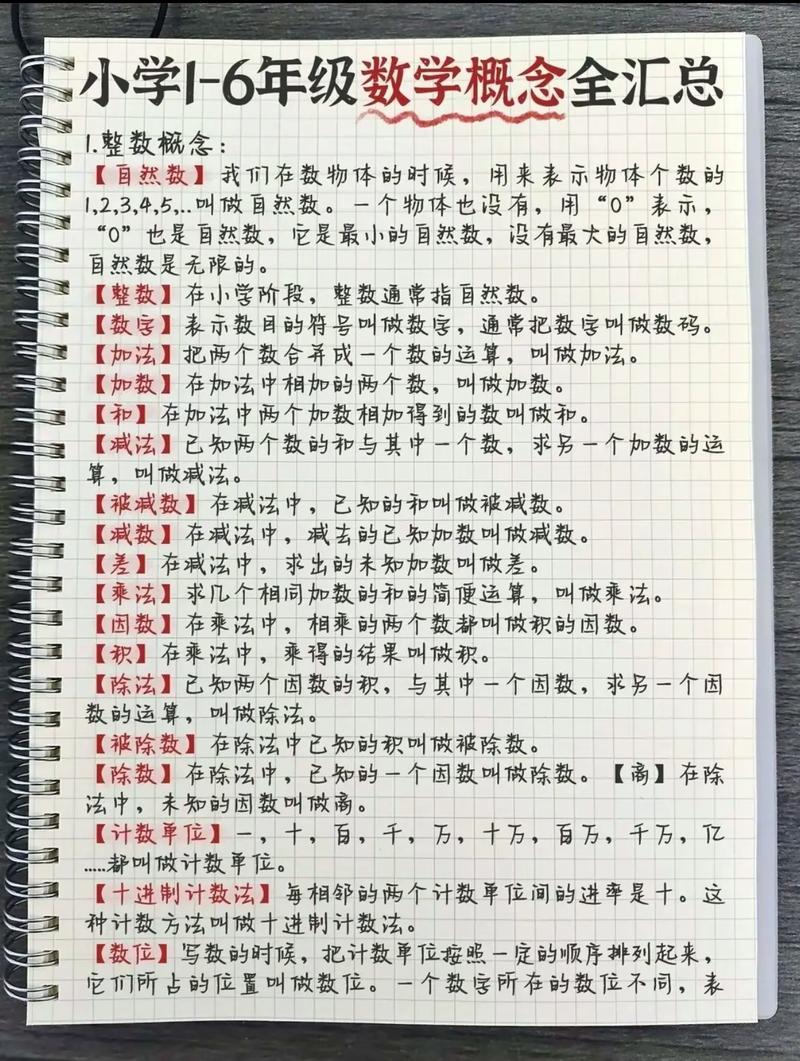 小学1-6年级数学概念全汇总
1.整数概念：
【自然数】我们在数物体的时候，用来表示物体个数的
1,2,3,4,5,..叫做自然数。一个物体也没有，用“0”表示，
“0”也是自然数，它是最小的自然数，没有最大的自然数，
自然数是无限的。
【整数】在小学阶段，整数通常指自然数。
【数字】表示数目的符号叫做数字，通常把数字叫做数码。
【加法】把两个数合并成一个数的运算，叫做加法。
【加数】在加法中相加的两个数，叫做加数。
【和】在加法中两个加数相加得到的数叫做和。
【减法】已知两个数的和与其中一个数，求另一个加数的运
算，叫做减法。
【被减数】在减法中，已知的和叫做被减数。
【减数】在减法中，减去的已知加数叫做减数。
【差】在减法中，求出的未知加数叫做差。
【乘法】求几个相同加数的和的简便运算，叫做乘法。
【因数】在乘法中，相乘的两个数都叫做积的因数。
【积】在乘法中，乘得的结果叫做积。
【除法】已知两个因数的积，与其中一个因数，求另一个因
数的运算，叫做除法。
【被除数】在除法中已知的积叫做被除数。
【除数】在除法中，已知的一个因数叫做除数。【商】在除
法中，未知的因数叫做商。
【计数单位】一，十，百，千，万，十万，百万，千万，亿
.....都叫做计数单位。
【十进制计数法】每相邻的两个计数单位间的进率是十。这
种计数方法叫做十进制计数法。
【数位】写数的时候，把计数单位按照一定的顺序排列起来，
它们所占的位置叫做数位。一个数字所在的数位不同，表